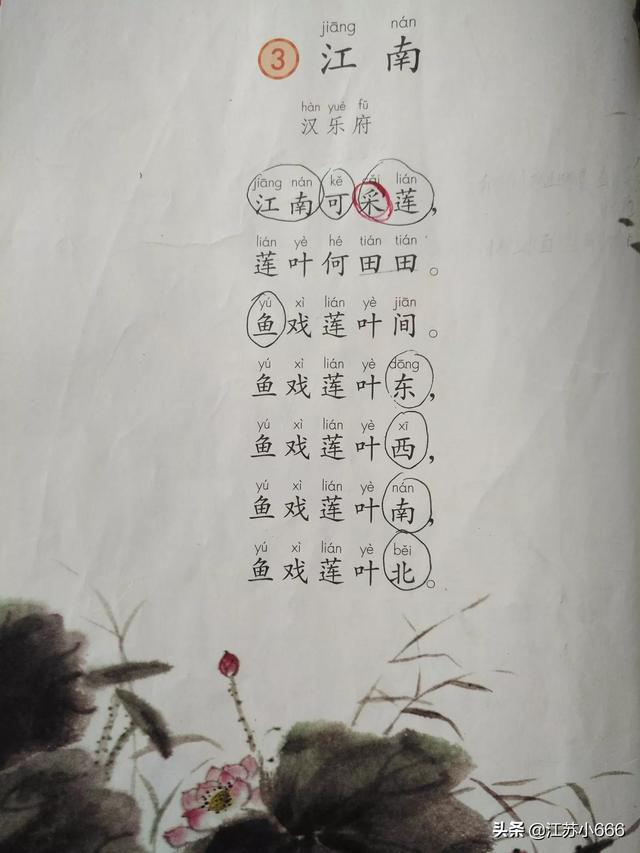 jiāng nán
3 江南
hàn yuè fǔ
汉乐府
jiāng nán kě cǎi lián
江南可采莲，
lián yè hé tián tián
莲叶何田田。
yú xì lián yè jiān
鱼戏莲叶间。
yú xì lián yè dōng
鱼戏莲叶东，
yú xì lián yè xī
鱼戏莲叶西，
yú xì lián yè nán
鱼戏莲叶南，
yú xì lián yè běi
鱼戏莲叶北。
头条 @江苏小666